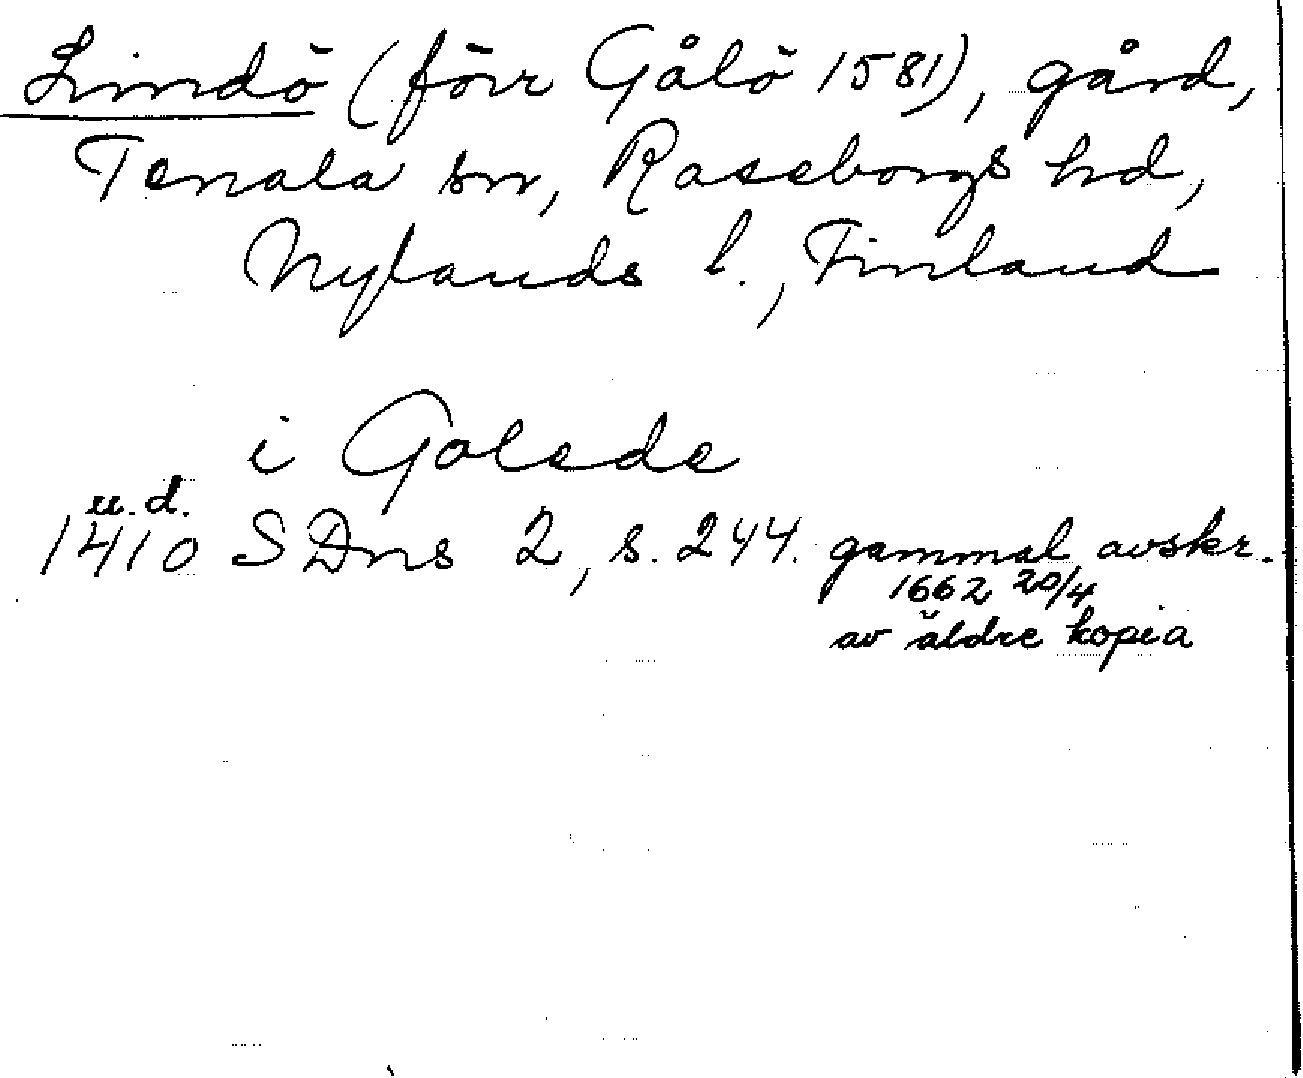 Lindö (förr Gålö 1581), gård,
Tenala sn, Raseborgs hd,
Nylands l., Finland
i Golede
u.d.
1410 SDns 2, s. 244. gammal avskr.
1662 20/4
av äldre kopia